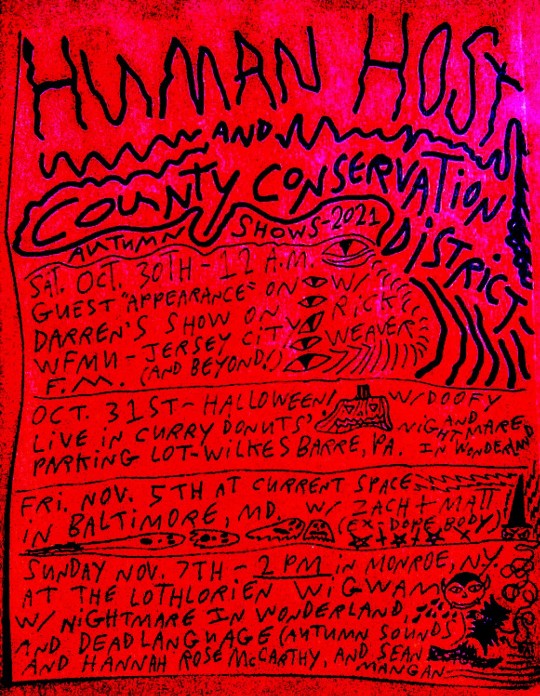 HUMAN HOST
AND
COUNTY CONSERVATION
DISTRICT
AUTUMN SHOWS-2021
SAT. OCT. 30TH - 12 A.M.
GUEST "APPEARANCE" ON W/
DARREN'S SHOW ON RICK
WFMU - JERSEY CITY WEAVER
F.M. (AND BEYOND!)
OCT. 31ST - HALLOWEEN! W/ DOOFY
LIVE IN CURRY DONUTS' AND NIGHTMARED
PARKING LOT - WILKES BARRE, PA. IN WONDERLAND
FRI. NOV. 5TH AT CURRENT SPACE
IN BALTIMORE, MD. W/ ZACH + MATT
(EX-DOPE BODY)
SUNDAY NOV. 7TH - 2 PM IN MONROE, N.Y.
AT THE LOTHLORIEN WIGWAM
W/ NIGHTMARE IN WONDERLAND,
AND DEAD LANGUAGE (AUTUMN SOUNDS)
AND HANNAH ROSE McCARTHY, AND SEAN
MANGAN